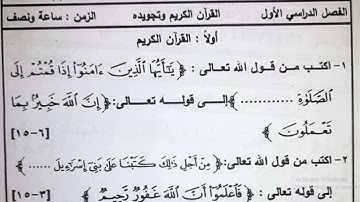 الفصل الدراسي الأول القرآن الكريم وتجويده الزمن : ساعة ونصف
أولاً : القرآن الكريم
١- اكتب من قول الله تعالى : ﴿ يَٰٓأَيُّهَا ٱلَّذِينَ ءَامَنُوٓا۟ إِذَا قُمْتُمْ إِلَى
ٱلصَّلَوٰةِ ............ ﴾ إلى قوله تعالى: ﴿ إِنَّ ٱللَّهَ خَبِيرٌۢ بِمَا
تَعْمَلُونَ ﴾ [٦-١٥]
٢- اكتب من قول الله تعالى: ﴿ مِنْ أَجْلِ ذَٰلِكَ كَتَبْنَا عَلَىٰ بَنِىٓ إِسْرَٰٓءِيلَ ...... ﴾
إلى قوله تعالى : ﴿ فَٱعْلَمُوٓا۟ أَنَّ ٱللَّهَ غَفُورٌ رَّحِيمٌ ﴾ [٣-١٥]
Activate Windows